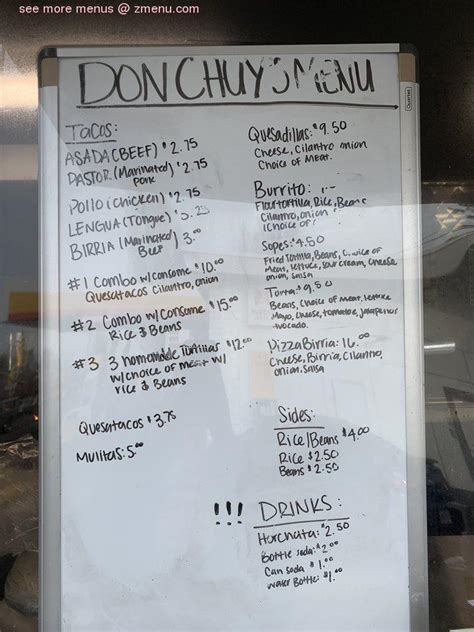 see more menus @ zmenu.com
DON CHUY'S MENU
Tacos:
ASADA (BEEF) $2.75
PASTOR (Marinated Pork $2.75
Pollo (chicken) $2.75
LENGUA (Tongue) $
BIRRIA (Marinated Beef) 3.00
#1 Combo w/consome $10.00
Quesatacos Cilantro, onion
#2 Combo w/Consome $15.00
Rice & Beans
#3 3 homemade Tortillas $12.00
w/choice of meat w/
rice & Beans
Quesatacos $3.75
Mulitas: 5.00
Quesadillas: $9.50
Cheese, Cilantro onion
Choice of Meat.
Burrito:
Flour tortilla, Rice, Beans
Cilantro, onion
(Choice of
Sopes: $4.50
Fried Tortilla, Beans, Choice of
Meat, lettuce, sour cream, Cheese
onion, salsa
Torta $9.50
Beans, Choice of Meat, lettuce
Mayo, Cheese, tomatoes, jalapeños
avocado.
Pizza Birria: 16.00
Cheese, Birria, Cilantro,
onion, salsa
Sides:
Rice/Beans $4.00
Rice $2.50
Beans $2.50
!!! DRINKS:
Horchata: $2.50
Bottle soda: $2.00
Can soda $1.00
Water Bottle: $1.00